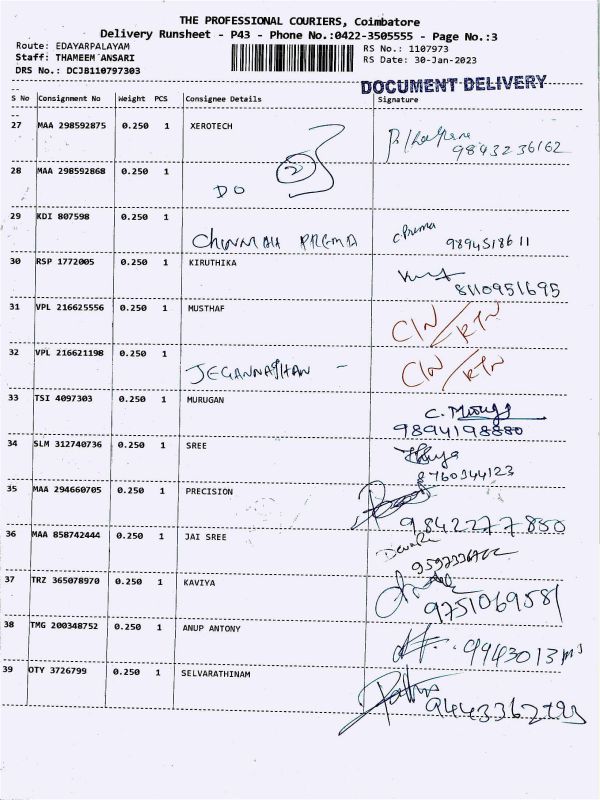 THE PROFESSIONAL COURIERS, Coimbatore
Delivery Runsheet - P43 - Phone No.:0422-3505555 - Page No.:3
Route: EDAYARPALAYAM RS No.: 1107973
Staff: THAMEEM ANSARI RS Date: 30-Jan-2023
DRS No.: DCJB110797303
DOCUMENT DELIVERY
S No Consignment No Weight PCS Consignee Details Signature
27 MAA 298592875 0.250 1 XEROTECH
9843236162
28 MAA 298592868 0.250 1
DO 2
29 KDI 807598 0.250 1
CHINMAH PREMA C Prema 9894518611
30 RSP 1772005 0.250 1 KIRUTHIKA
8110951695
31 VPL 216625556 0.250 1 MUSTHAF
CIN/RTN
32 VPL 216621198 0.250 1
JEGANNATHAN - CIN/RTN
33 TSI 4097303 0.250 1 MURUGAN
9894198880
34 SLM 312740736 0.250 1 SREE
8760344123
35 MAA 294660705 0.250 1 PRECISION
9842277850
36 MAA 858742444 0.250 1 JAI SREE
37 TRZ 365078970 0.250 1 KAVIYA
9751069581
38 TMG 200348752 0.250 1 ANUP ANTONY
39 OTY 3726799 0.250 1 SELVARATHINAM